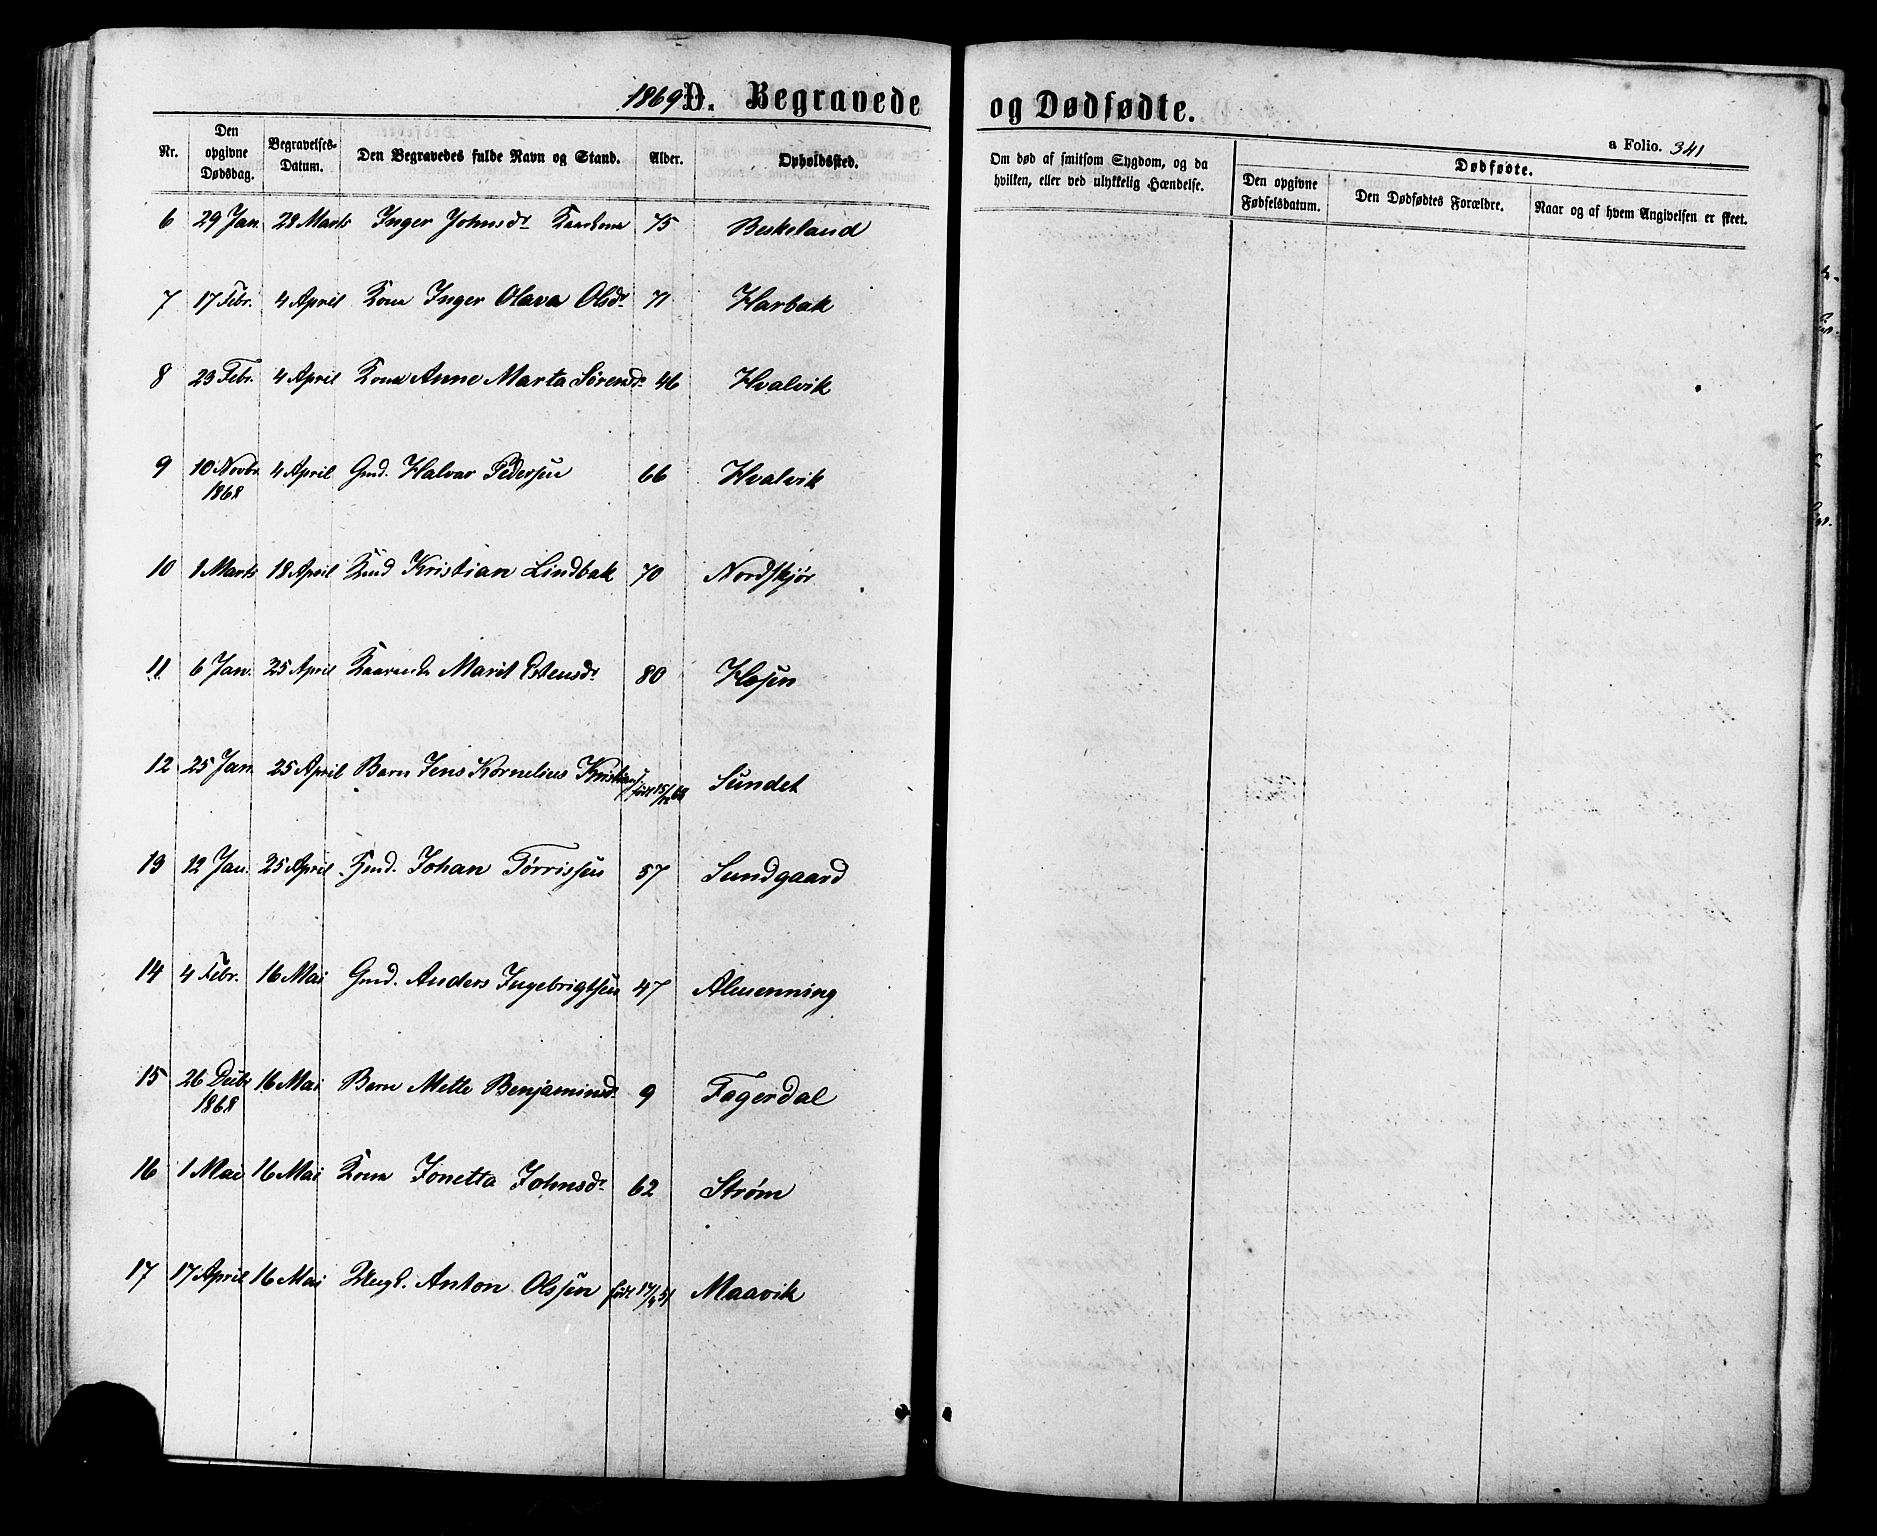 1869 D. Begravede og Dødfødte.
a Folio. 341
Nr. Den opgivne Dødsdag. Begravelses-Datum. Den Begravedes fulde Navn og Stand. Alder. Opholdssted. Om død af smitsom Sygdom, og da hvilken, eller ved ulykkelig Hændelse. Dødfødte. Den opgivne Fødselsdatum. Den Dødfødtes Forældre. Naar og af hvem Angivelsen er skeet.
6 29 Jan. 28 Marts Inger Johnsdr 75 Beskeland
7 17 Febr. 4 April Kona Inger Olava Olsdr 71 Harbak
8 23 Febr. 4 April Kona Anne Marta Sørensdr 46 Hvalvik
9 10 Novbr. 1868 4 April Gmd. Halvar Pedersen 66 Hvalvik
10 1 Marts 18 April Kmd Kristian Lindbak 70 Nordskjør
11 6 Jan. 25 April Marit Estensdr 80 Hosen
12 25 Jan. 25 April Barn Jens Kornelius Kristians. født 15/12 68 Sundet
13 12 Jan. 25 April Johan Tørrissen 87 Sundgaard
14 4 Febr. 16 Mai Gmd. Anders Ingebrigtsen 47 Almenning
15 26 Decbr 1868 16 Mai Barn Mette Benjaminsdr 9 Fagerdal
16 1 Mai 16 Mai Kona Jonetta Johnsdr 62 Strøm
17 17 April 16 Mai Ungk. Anton Olssen født 51 Maavik